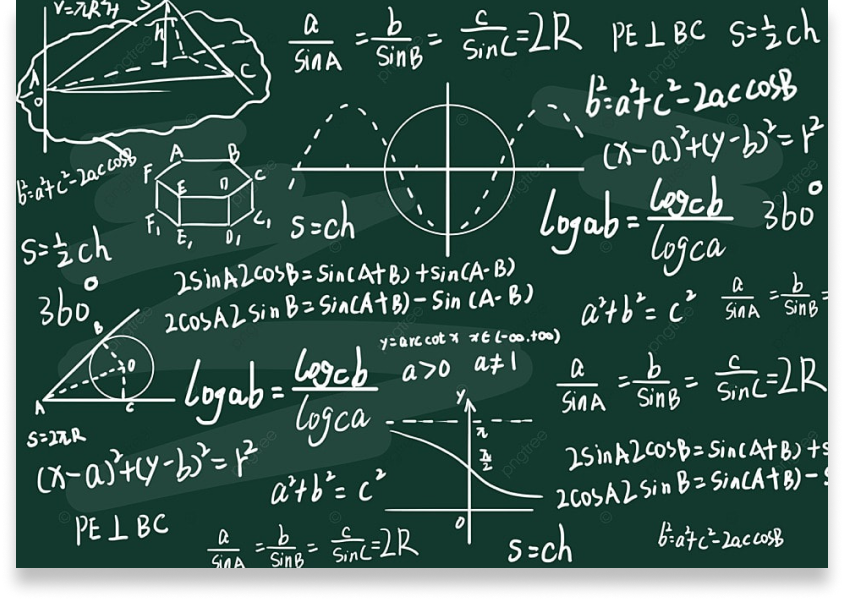 V=πR²H
S
h
A
O
C
a/SinA = b/SinB = c/SinC = 2R
PE⊥BC
S=½ch
b²=a²+c²-2accosB
(x-a)²+(y-b)²=r²
b²=a²+c²-2accosB
A B
F E D C
F₁ E₁ D₁ C₁
S=ch
logab = logcb/logca
360°
S=½ch
2SinA2cosB=Sin(A+B)+sin(A-B)
2cosA2sinB=Sin(A+B)-Sin(A-B)
360°
a²+b²=c²
a/SinA = b/SinB =
B
O
A
C
logab = logcb/logca
y=arccotx x∈(-∞.+∞)
a>0 a≠1
a/SinA = b/SinB = c/SinC = 2R
S=2πR
y
π
π/2
O
(x-a)²+(y-b)²=r²
a²+b²=c²
2SinA2cosB=Sin(A+B)+s
2cosA2sinB=Sin(A+B)-S
PE⊥BC
a/SinA = b/SinB = c/SinC = 2R
S=ch
b²=a²+c²-2accosB
pngtree